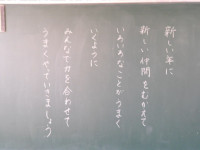 新しい年に
新しい仲間をむかえて
いろいろなことがうまく
いくように
みんなで力を合わせて
うまくやっていきましょう